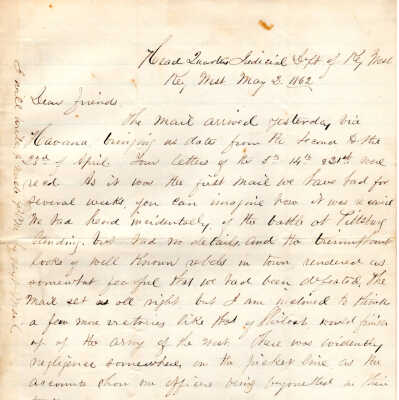 Head Quarters Judicial Dpt of Key West
Key West May 2. 1862
Dear Friend,
The mail arrived yesterday via
Havana bringing us dates from the second to the
23d of April. Four letters of the 5th 14th & 21st were
recd As it was the first mail we have had for
several weeks, you can imagine how it was received
We had heard incidentally of the battle at Pittsburg
Landing, but had no details, and the triumphant
looks of well known rebels in town rendered us
somewhat fearful that we had been defeated. The
Mail set us all right but I am inclined to think
a few more victories like that of Shiloh would finish
up of the army of the west. There was evidently
negligence somewhere on the picket line as the
accounts show me officers being bayonetted in their